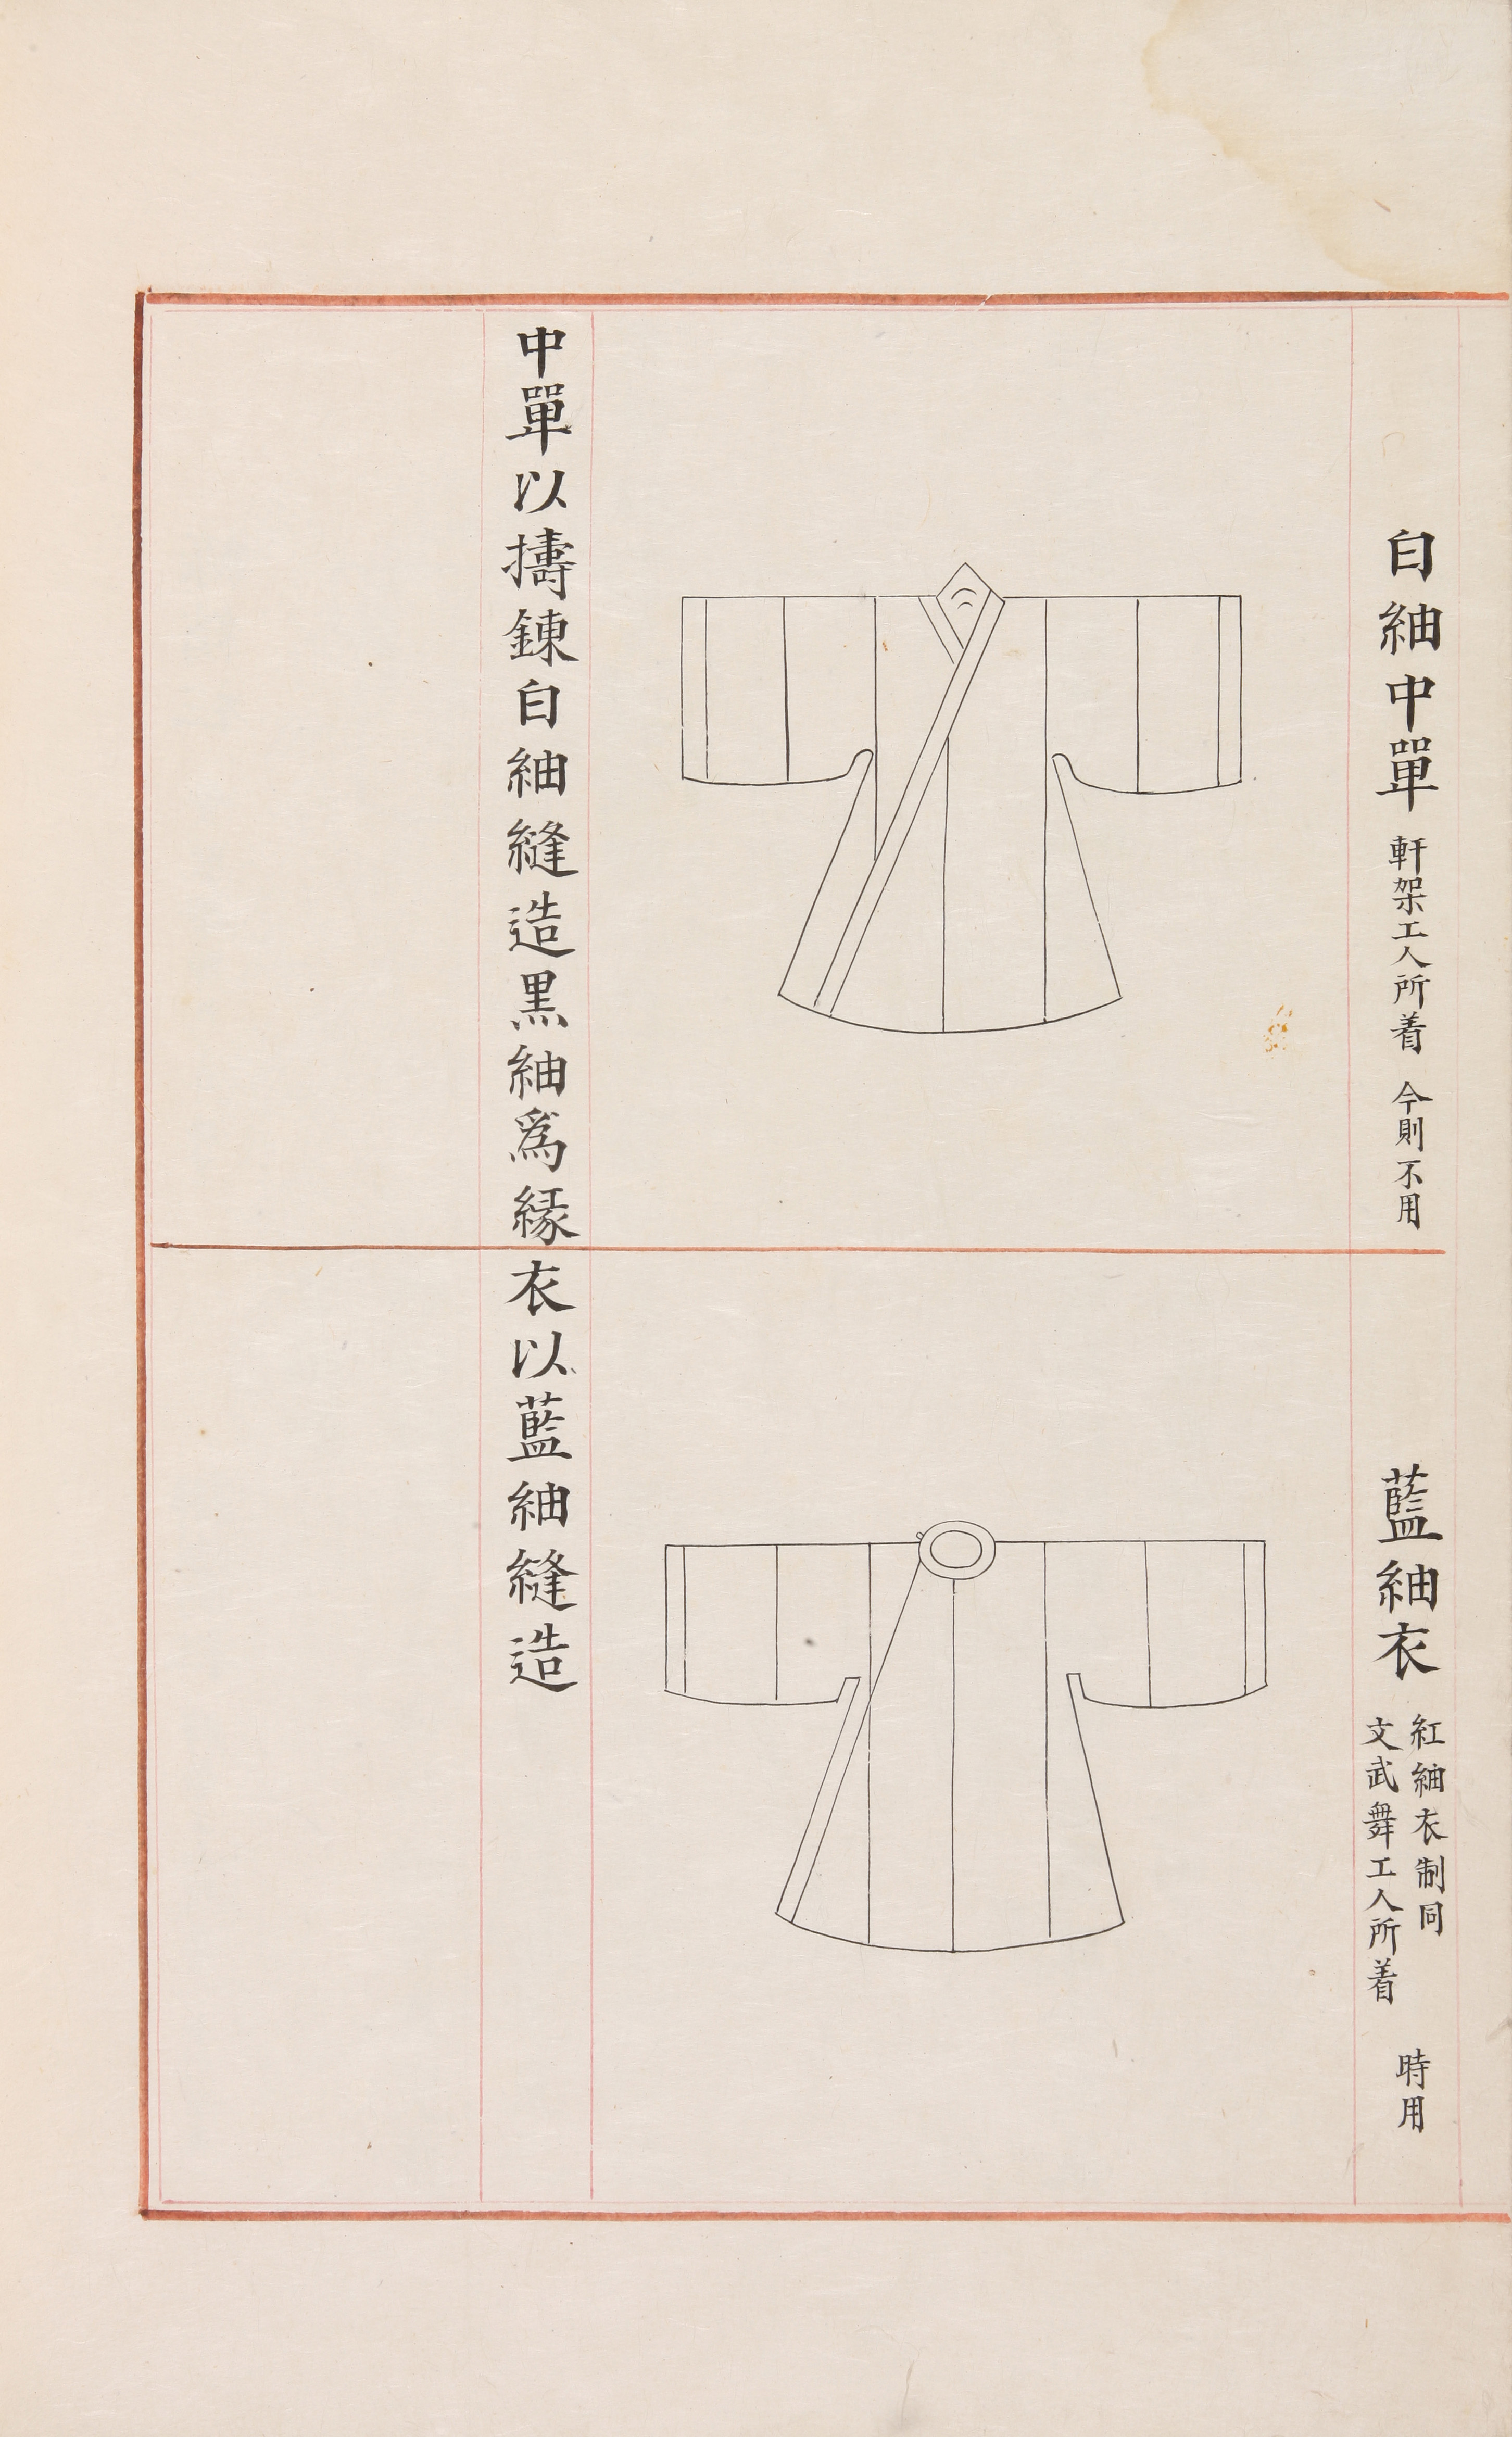 白紬中單 軒架工人所着 今則不用
藍紬衣 紅紬衣制同
文武舞工人所着
時用
中單以擣鍊白紬縫造黑紬爲緣衣以藍紬縫造